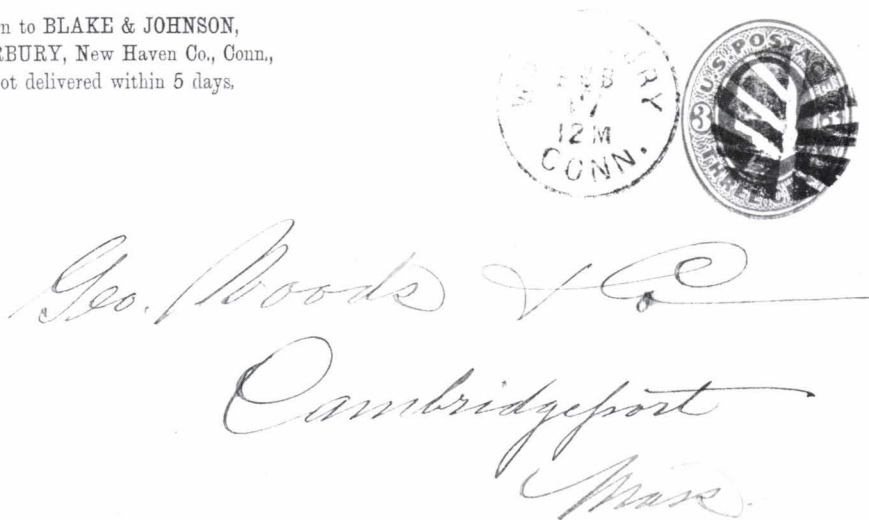 n to BLAKE & JOHNSON,
RBURY, New Haven Co., Conn.,
ot delivered within 5 days,
12 M
CONN.
U.S. POSTAGE
3
THREE
Geo. Woods & Co
Cambridgeport
Mass.